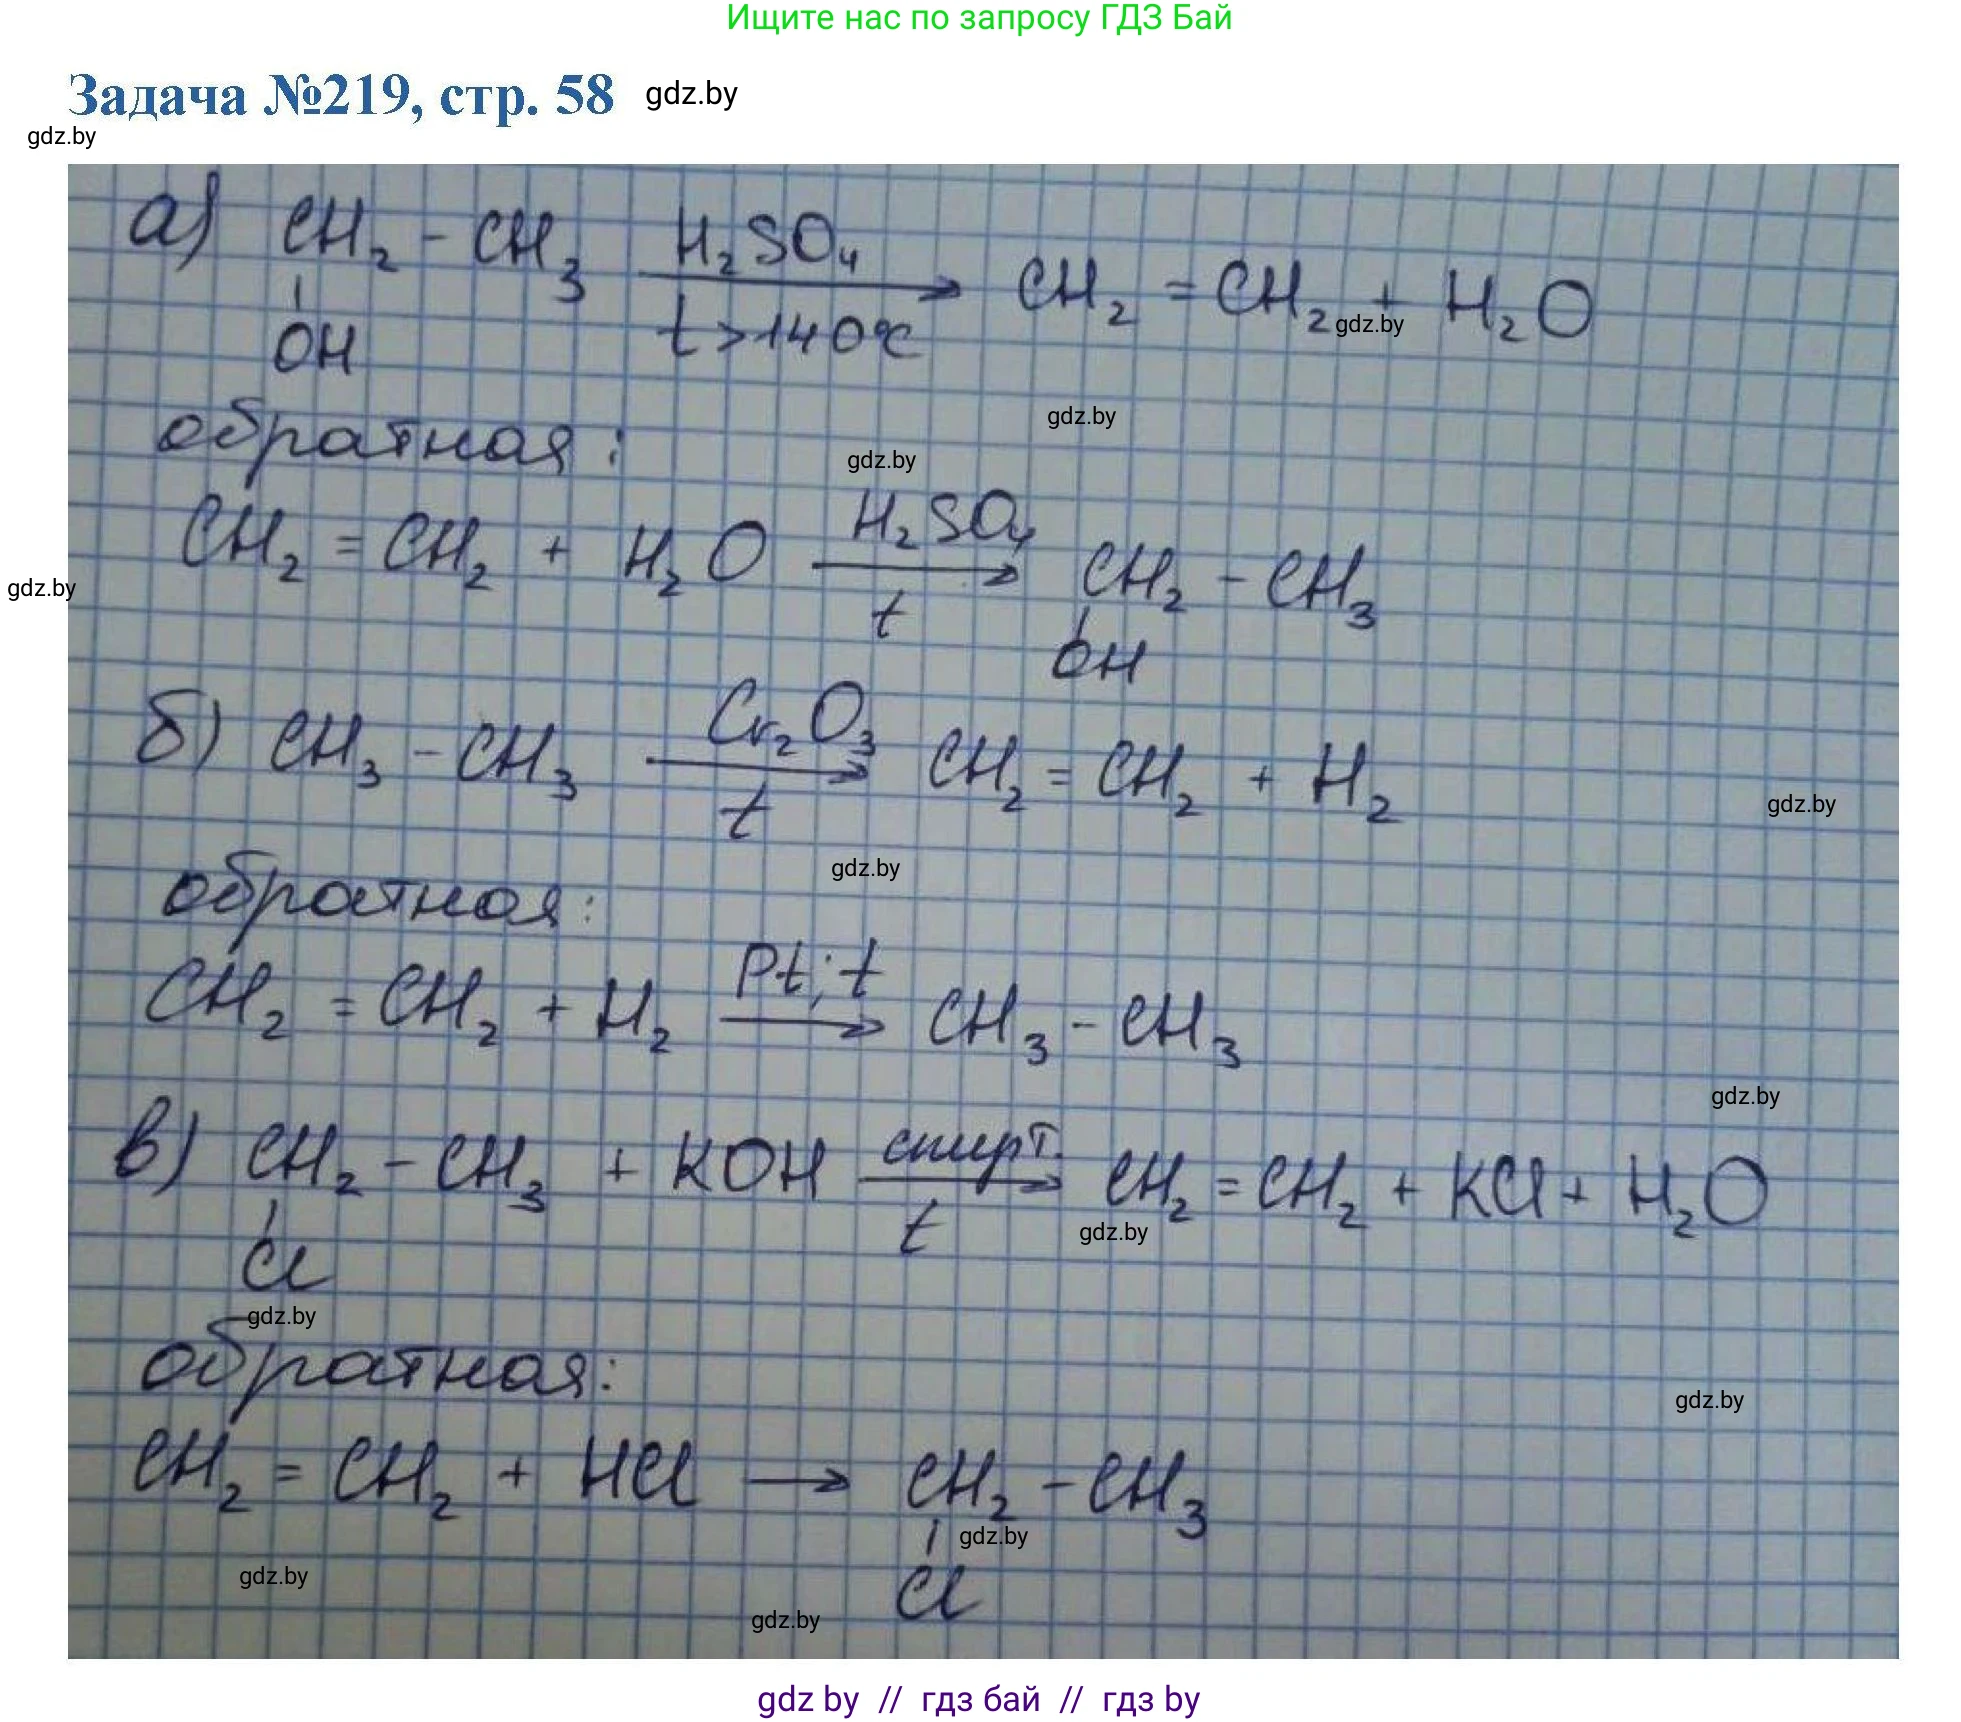 Ищите нас по запросу ГДЗ Бай
Задача №219, стр. 58 gdz.by
gdz.by
а) CH₂ - CH₃ H₂SO₄ t > 140°C → CH₂ = CH₂ + H₂O
OH
gdz.by
обратная:
gdz.by
gdz.by
CH₂ = CH₂ + H₂O H₂SO₄ t → CH₂ - CH₃
gdz.by
OH
б) CH₃ - CH₃ Cr₂O₃ t → CH₂ = CH₂ + H₂
gdz.by
gdz.by
обратная:
CH₂ = CH₂ + H₂ Pt; t → CH₃ - CH₃
gdz.by
в) CH₂ - CH₃ + KOH спирт. t → CH₂ = CH₂ + KCl + H₂O
gdz.by
Cl
gdz.by
обратная:
gdz.by
CH₂ = CH₂ + HCl → CH₂ - CH₃
gdz.by
Cl
gdz.by
gdz.by
gdz by // гдз бай // гдз by